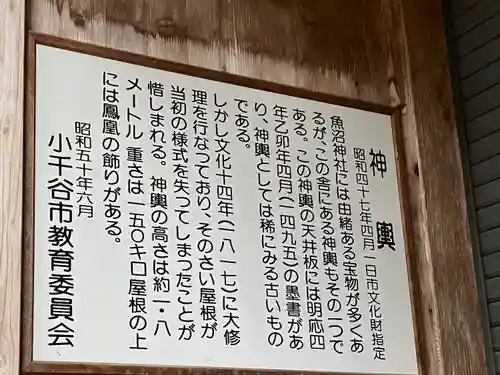 神輿
昭和四十七年四月一日市文化財指定
魚沼神社には由緒ある宝物が多くあ
るが、この舎にある神輿もその一つで
ある。この神輿の天井板には明応四
年乙卯年四月(一四九五)の墨書があ
り、神輿としては稀にみる古いもの
である。
しかし文化十四年(一八一七)に大修
理を行なつており、そのさい屋根が
当初の様式を失つてしまつたことが
惜しまれる。神輿の高さは約一・八
メートル 重さは一五〇キロ屋根の上
には鳳凰の飾りがある。
昭和五十年六月
小千谷市教育委員会